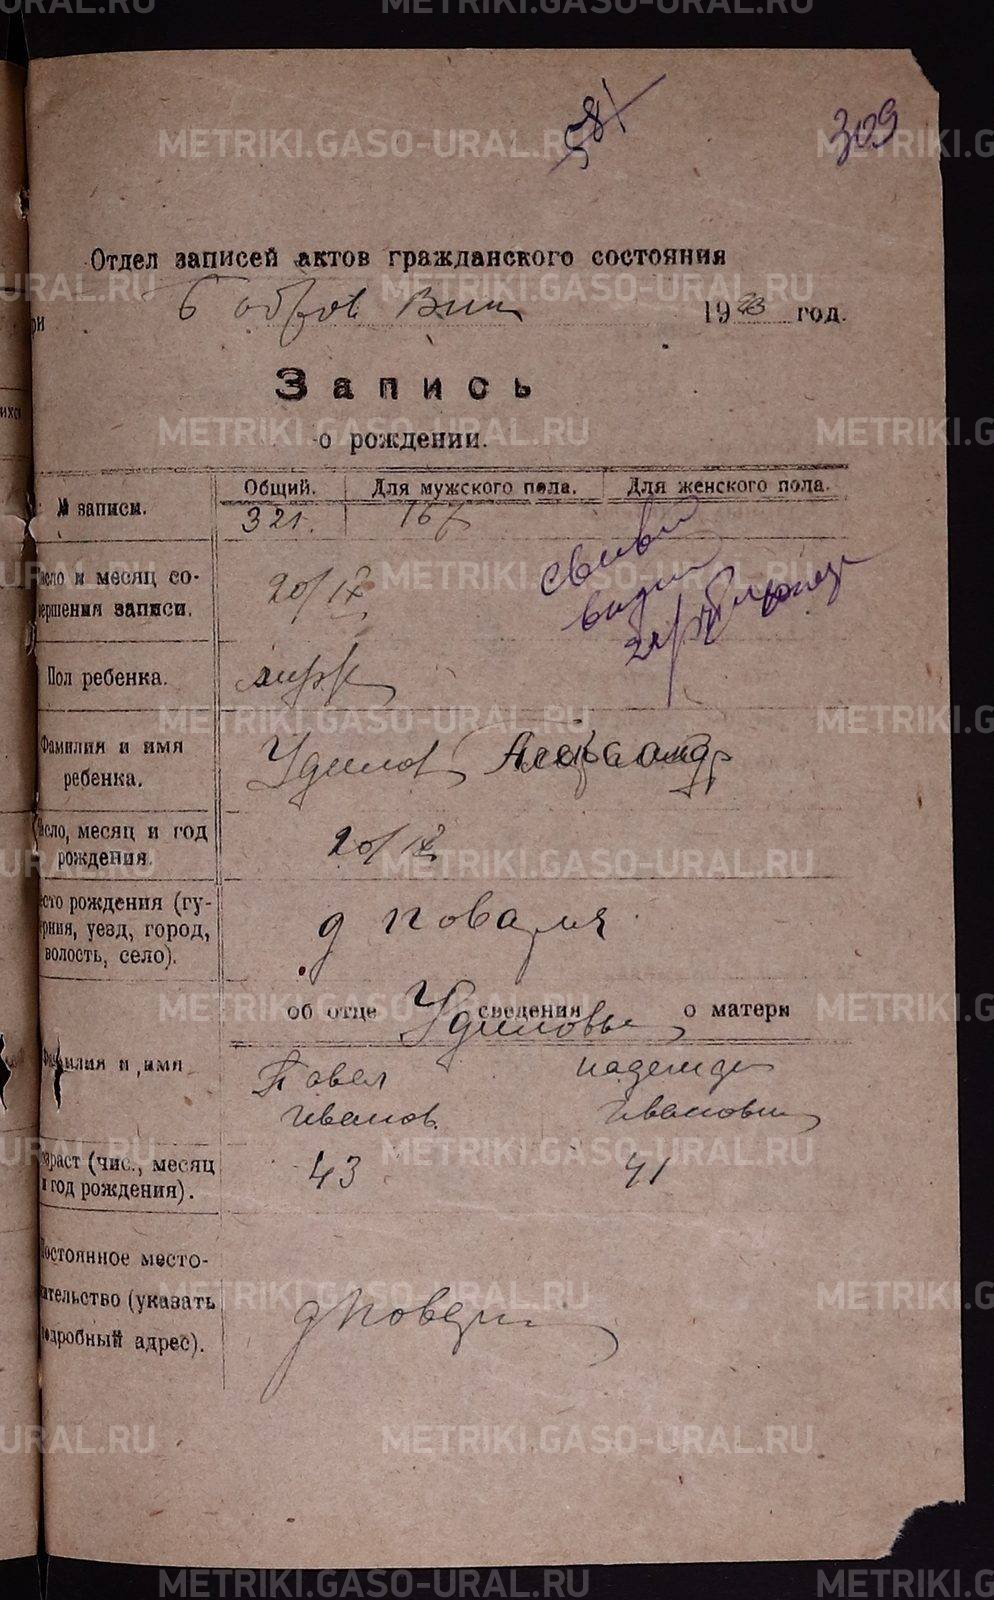 METRIKI.GASO-URAL.RU
309
Отдел записей актов гражданского состояния
ри 1923 год.
Запись
о рождении.
№ записи.
Общий. Для мужского пола. Для женского пола.
321. 167
исло и месяц со-
вершения записи.
20/IX
Пол ребенка.
Фамилия и имя
ребенка.
Удилов Александр
исло, месяц и год
рождения.
20/IX
есто рождения (гу-
ерния, уезд, город,
волость, село).
д Поварня
об отце сведения о матери
Удиловы
Фамилия и имя
Павел Надежда
Иванов. Ивановн
зраст (чис., месяц
и год рождения).
43 41
Постоянное место-
жительство (указать
подробный адрес).
METRIKI.GASO-URAL.RU